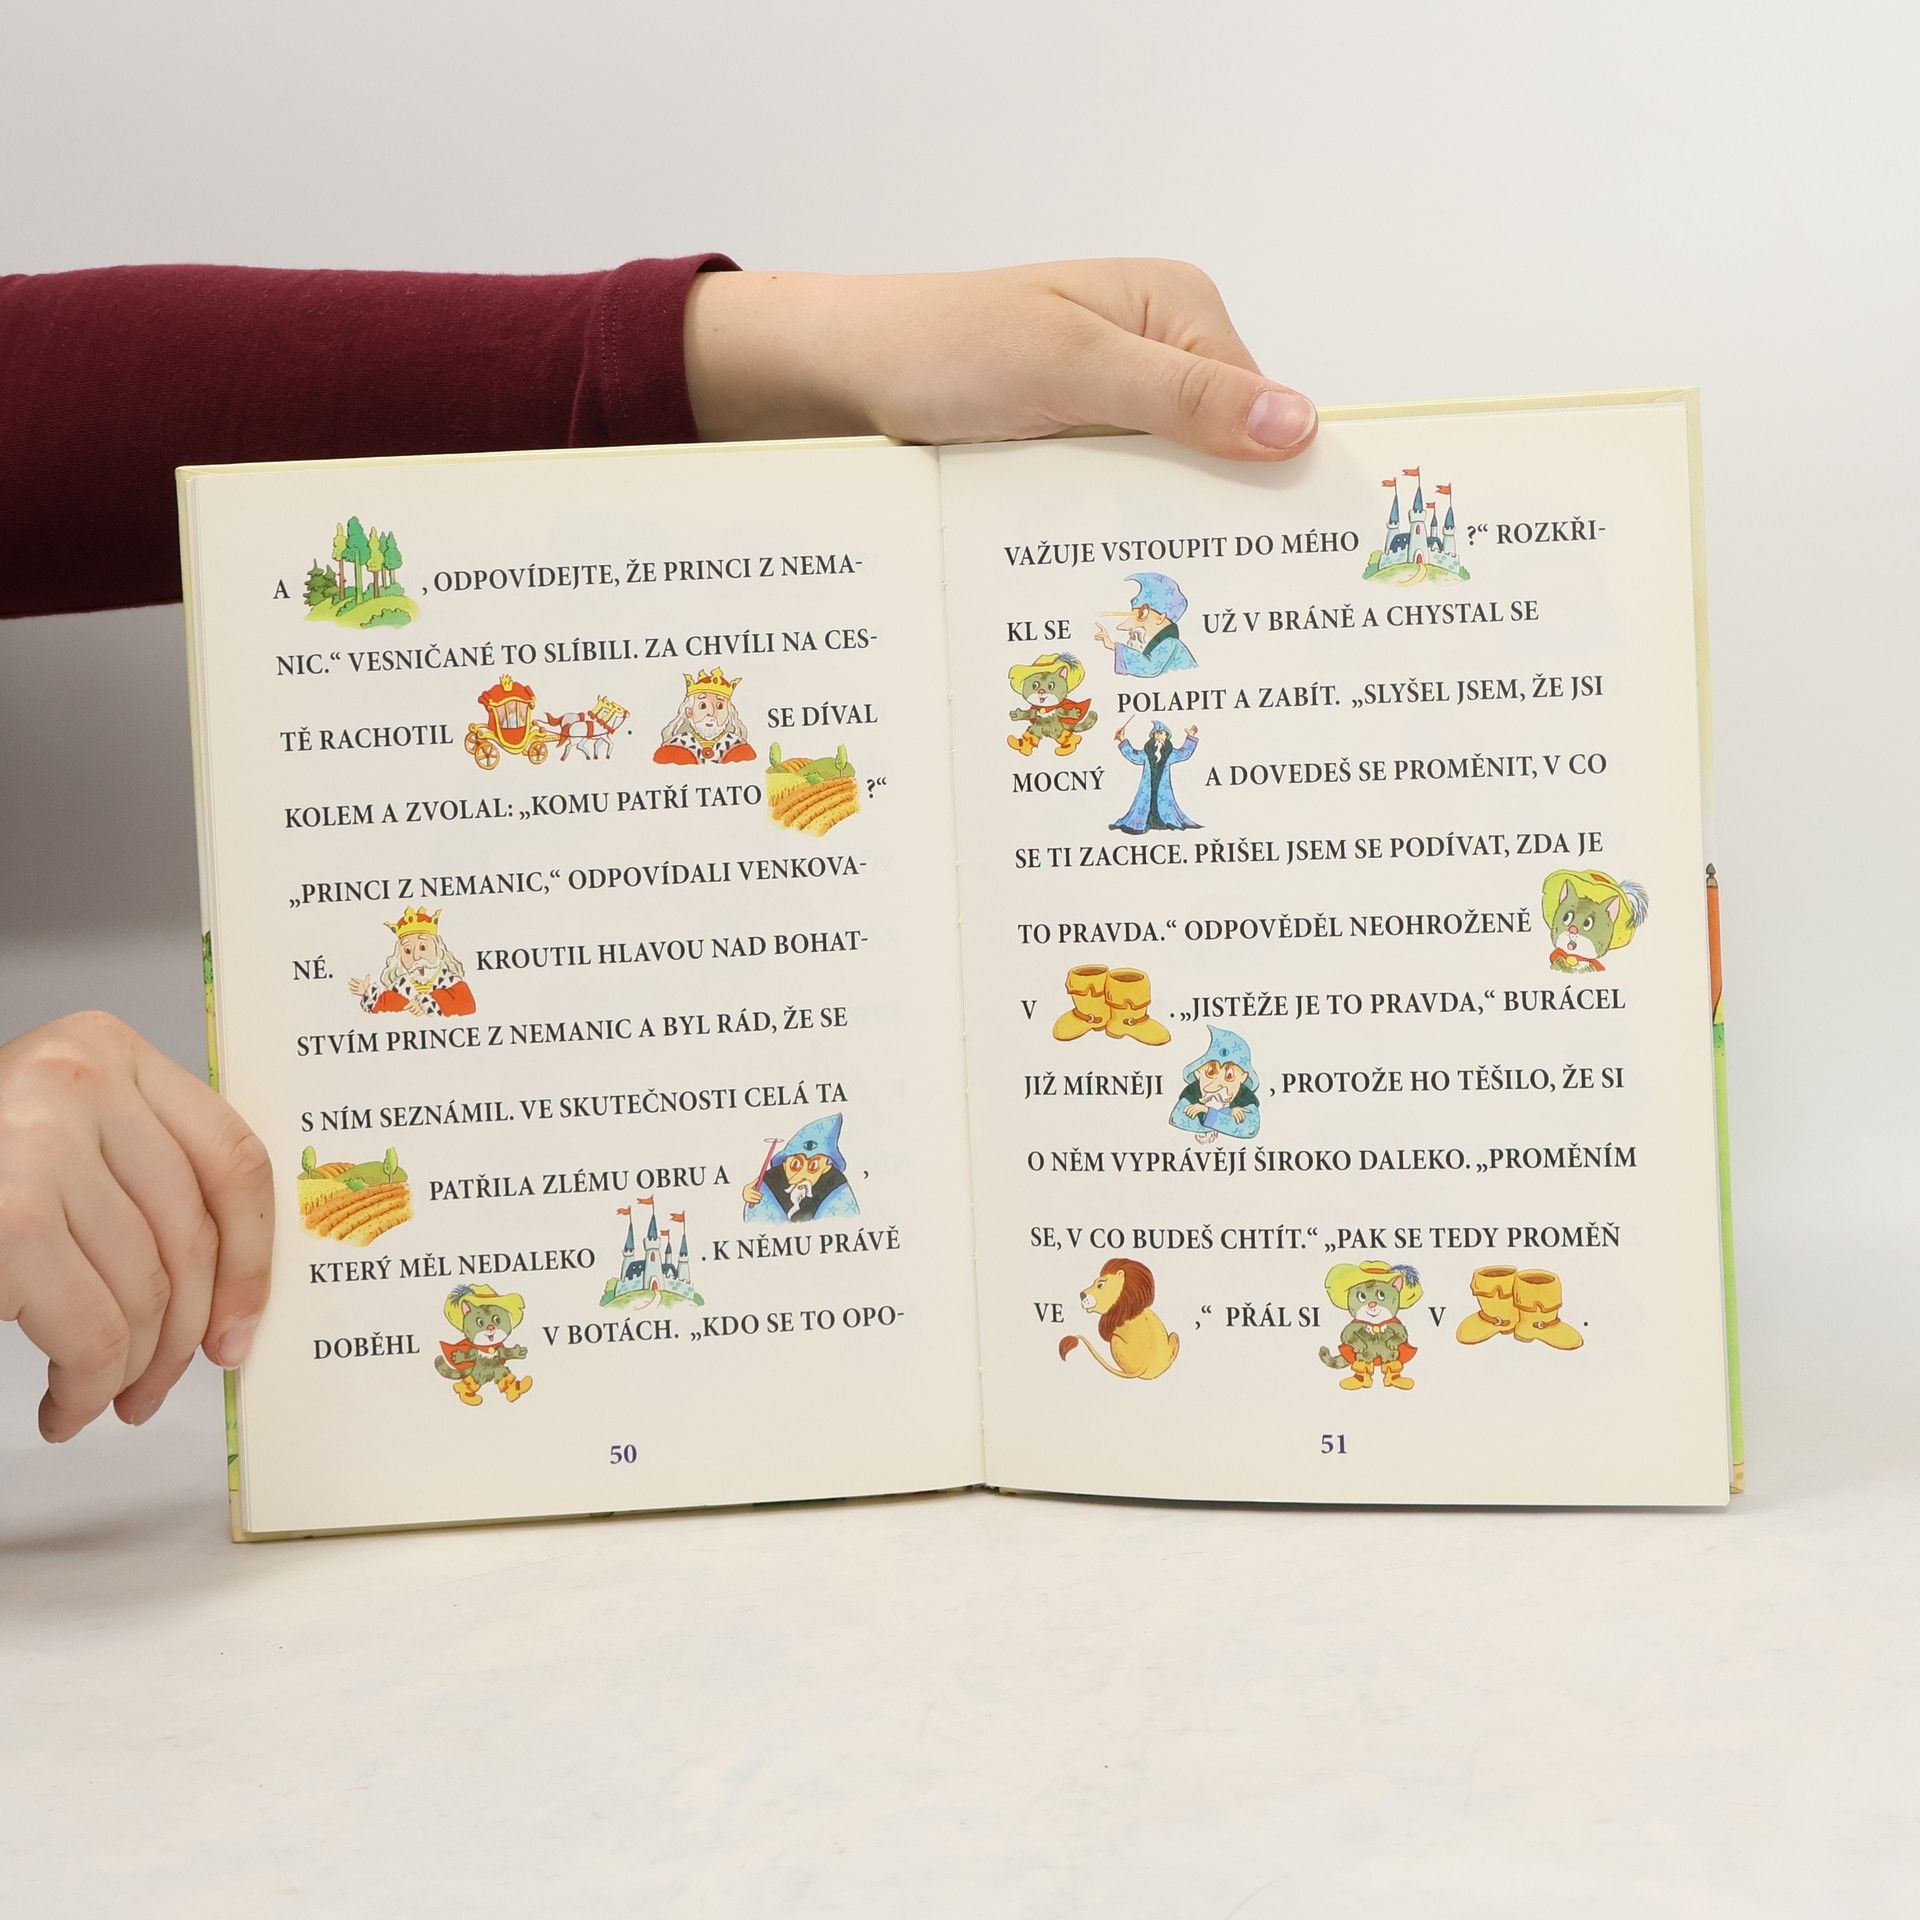 A , ODPOVÍDEJTE, ŽE PRINCI Z NEMA-
NIC.“ VESNIČANÉ TO SLÍBILI. ZA CHVÍLI NA CES-
TĚ RACHOTIL . SE DÍVAL
KOLEM A ZVOLAL: „KOMU PATŘÍ TATO ?“
„PRINCI Z NEMANIC,“ ODPOVÍDALI VENKOVA-
NÉ. KROUTIL HLAVOU NAD BOHAT-
STVÍM PRINCE Z NEMANIC A BYL RÁD, ŽE SE
S NÍM SEZNÁMIL. VE SKUTEČNOSTI CELÁ TA
PATŘILA ZLÉMU OBRU A ,
KTERÝ MĚL NEDALEKO . K NĚMU PRÁVĚ
DOBĚHL V BOTÁCH. „KDO SE TO OPO-
50
VAŽUJE VSTOUPIT DO MÉHO ?“ ROZKŘI-
KL SE UŽ V BRÁNĚ A CHYSTAL SE
POLAPIT A ZABÍT. „SLYŠEL JSEM, ŽE JSI
MOCNÝ A DOVEDEŠ SE PROMĚNIT, V CO
SE TI ZACHCE. PŘIŠEL JSEM SE PODÍVAT, ZDA JE
TO PRAVDA.“ ODPOVĚDĚL NEOHROŽENĚ
V . „JISTĚŽE JE TO PRAVDA,“ BURÁCEL
JIŽ MÍRNĚJI , PROTOŽE HO TĚŠILO, ŽE SI
O NĚM VYPRÁVĚJÍ ŠIROKO DALEKO. „PROMĚNÍM
SE, V CO BUDEŠ CHTÍT.“ „PAK SE TEDY PROMĚŇ
VE ,“ PŘÁL SI V .
51